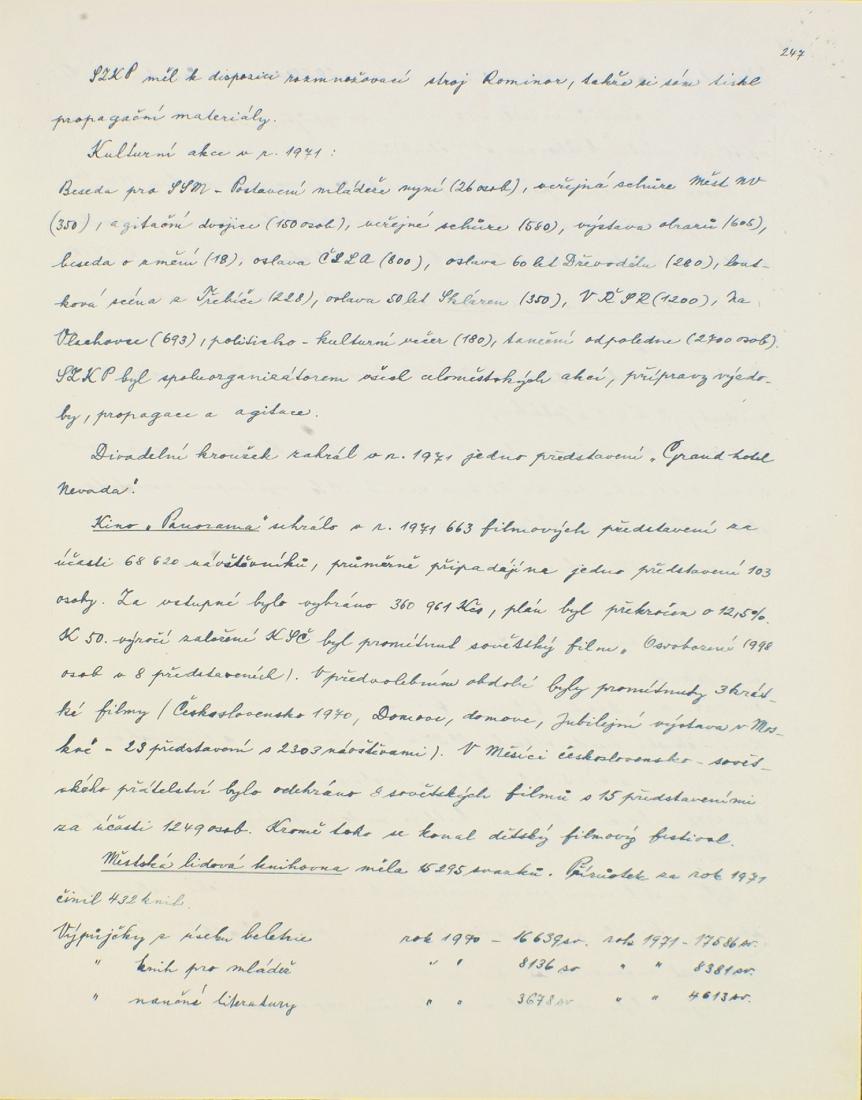 247
SZKP měl k disposici rozmnožovací stroj Rominor, takže si sám tiskl
propagační materiály.
Kulturní akce v r. 1971:
Beseda pro SSM - Postavení mládeže nyní (26 osob), veřejná schůze Měst NV
(350), agitační dvojice (150 osob), veřejné schůze (580), výstava obrazů (605),
beseda o umění (18), oslava ČSLA (800), oslava 60 let Dřevodělu (280), lout-
ková scéna z Třebíče (228), oslava 50 let Skláren (350), VŘSR (1200), Na
Vlachovce (693), politicko-kulturní večer (180), taneční odpoledne (2700 osob).
SZKP byl spoluorganizátorem všech celoměstských akcí, přípravy výzdo-
by, propagace a agitace.
Divadelní kroužek zahrál v r. 1971 jedno představení „Grand hotel
Nevada".
Kino „Panorama" sehrálo v r. 1971 663 filmových představení za
účasti 68 620 návštěvníků, průměrně připadá na jedno představení 103
osoby. Za vstupné bylo vybráno 360 961 Kčs, plán byl překročen o 12,5%.
K 50. výročí založení KSČ byl promítnut sovětský film „Osvobození (998
osob v 8 představeních). V předvolebním období byly promítnuty 3 krát-
ké filmy (Československo 1970, Domove, domove, Jubilejní výstava v Mos-
kvě - 23 představení s 2303 návštěvami). V Měsíci československo-sovět-
ského přátelství bylo odehráno 8 sovětských filmů s 15 představeními
za účasti 1249 osob. Kromě toho se konal dětský filmový festival.
Městská lidová knihovna měla 15 295 svazků. Přírůstek za rok 1971
činil 432 knih.
Výpůjčky z úseku beletrie rok 1970 - 16639 sv. rok 1971 - 17586 sv.
" knih pro mládež " " 8136 sv " " 8381 sv.
" naučné literatury " " 3678 sv " " 4613 sv.